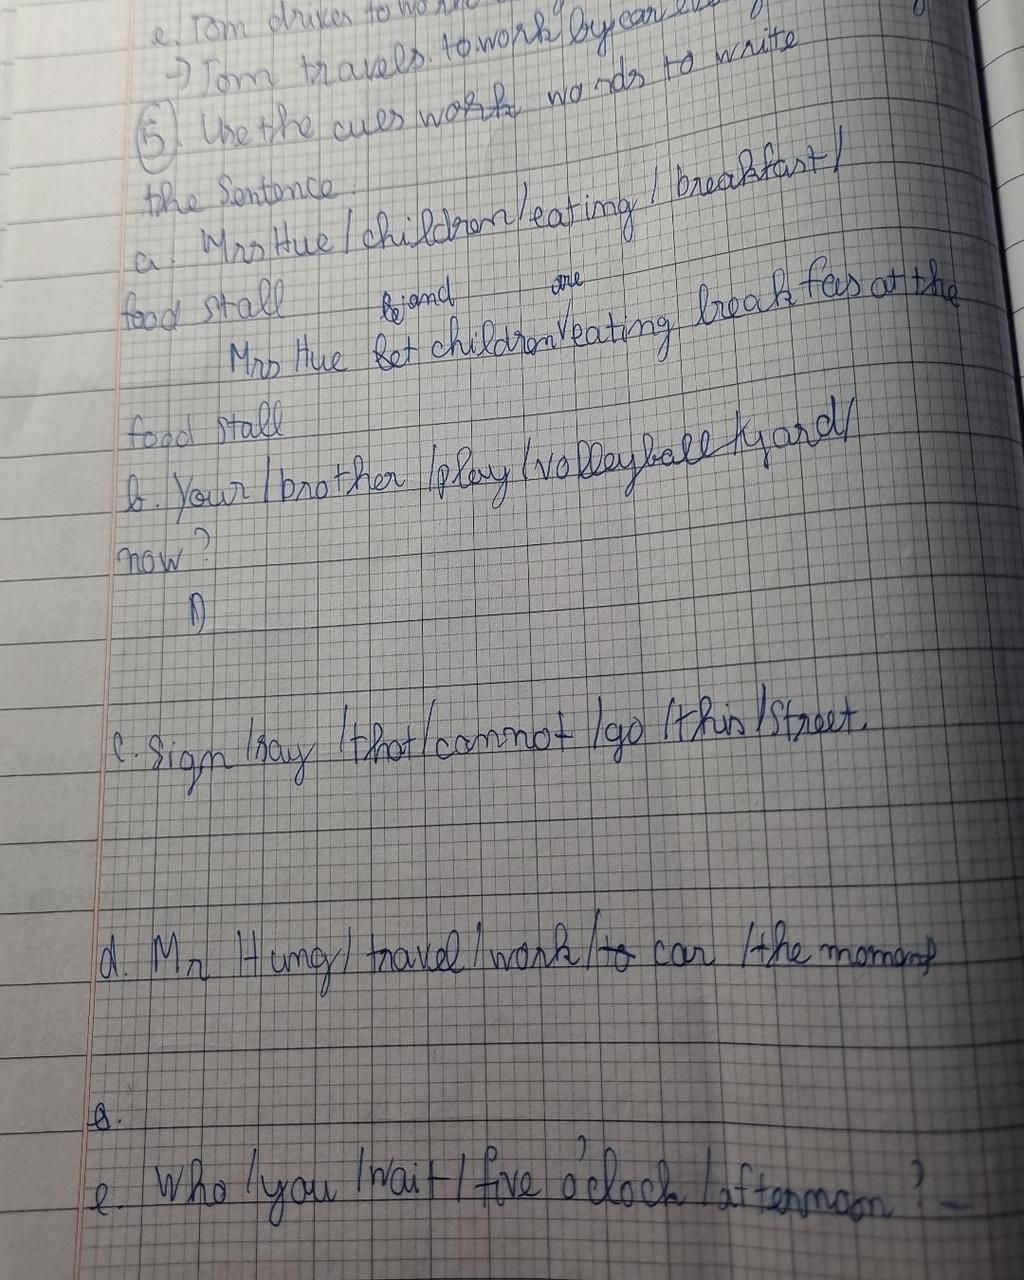 e. Tom drives to
→ Tom travels to work by car
5. Use the cues work words to write
the sentence.
a. Mrs Hue / children / eating / breakfast /
food stall
and are
Mrs Hue children eating break fas at the
food stall
b. Your / brother / play / volleyball / yard /
now?
c. Sign / say / that / cannot / go / this / street.
d. Mr Hung / travel / work / to car / the moment
e.
e. Who / you / wait / five o'clock / afternoon?